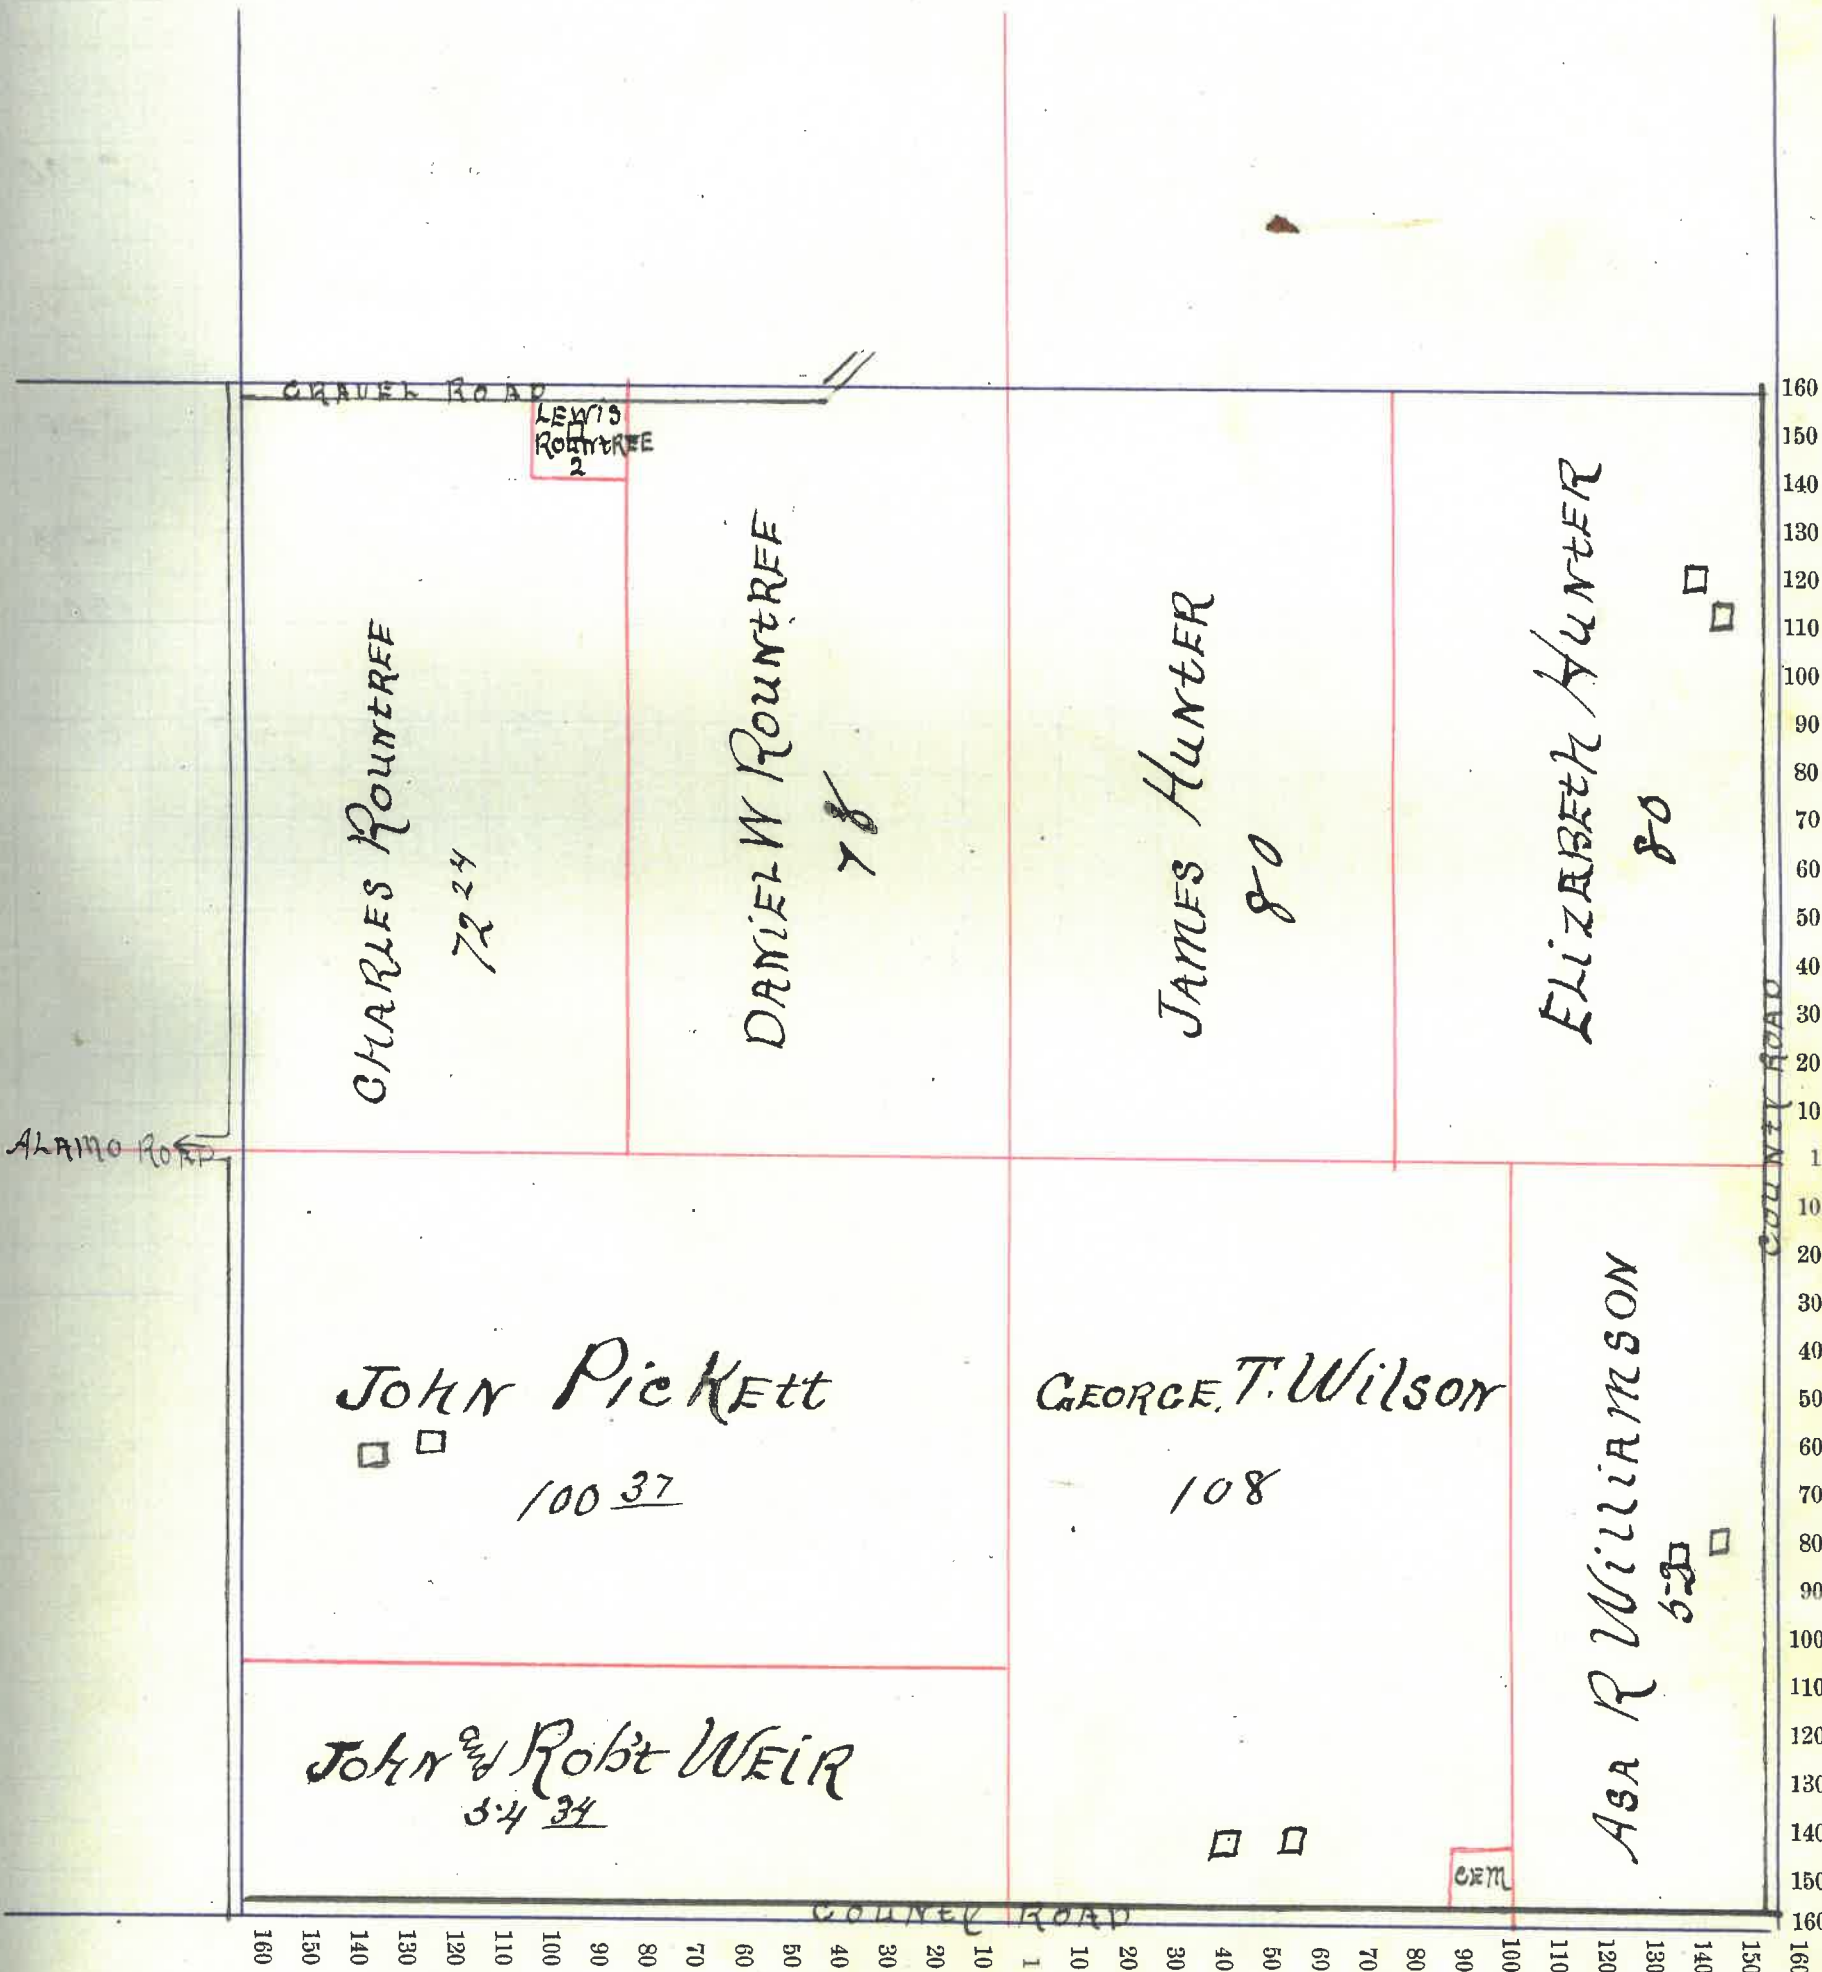 GRAVEL ROAD
LEWIS
ROUNTREE
2
CHARLES ROUNTREE
72 24
DANIEL W ROUNTREE
78
JAMES HUNTER
80
ELIZABETH HUNTER
80
ALAMO ROAD
COUNTY ROAD
JOHN PICKETT
100 37
GEORGE. T. WILSON
108
ASA R WILLIAMSON
52
JOHN and ROB'T WEIR
54 34
CEM
COUNTY ROAD
160
150
140
130
120
110
100
90
80
70
60
50
40
30
20
10
1
10
20
30
40
50
60
70
80
90
100
110
120
130
140
150
160
160 150 140 130 120 110 100 90 80 70 60 50 40 30 20 10 1 10 20 30 40 50 60 70 80 90 100 110 120 130 140 150 160